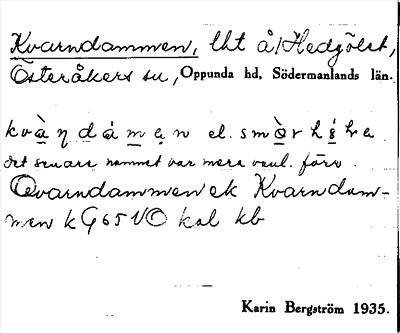 Kvarndammen, lht å/Hedgölet,
Österåkers sn, Oppunda hd, Södermanlands län.
kvàṇdámen el. smòrhs̀ka
det senare namnet var mera vanl. förr.
Qvarndammen ek Kvarndam-
men k G65 VO kal kb
Karin Bergström 1935.